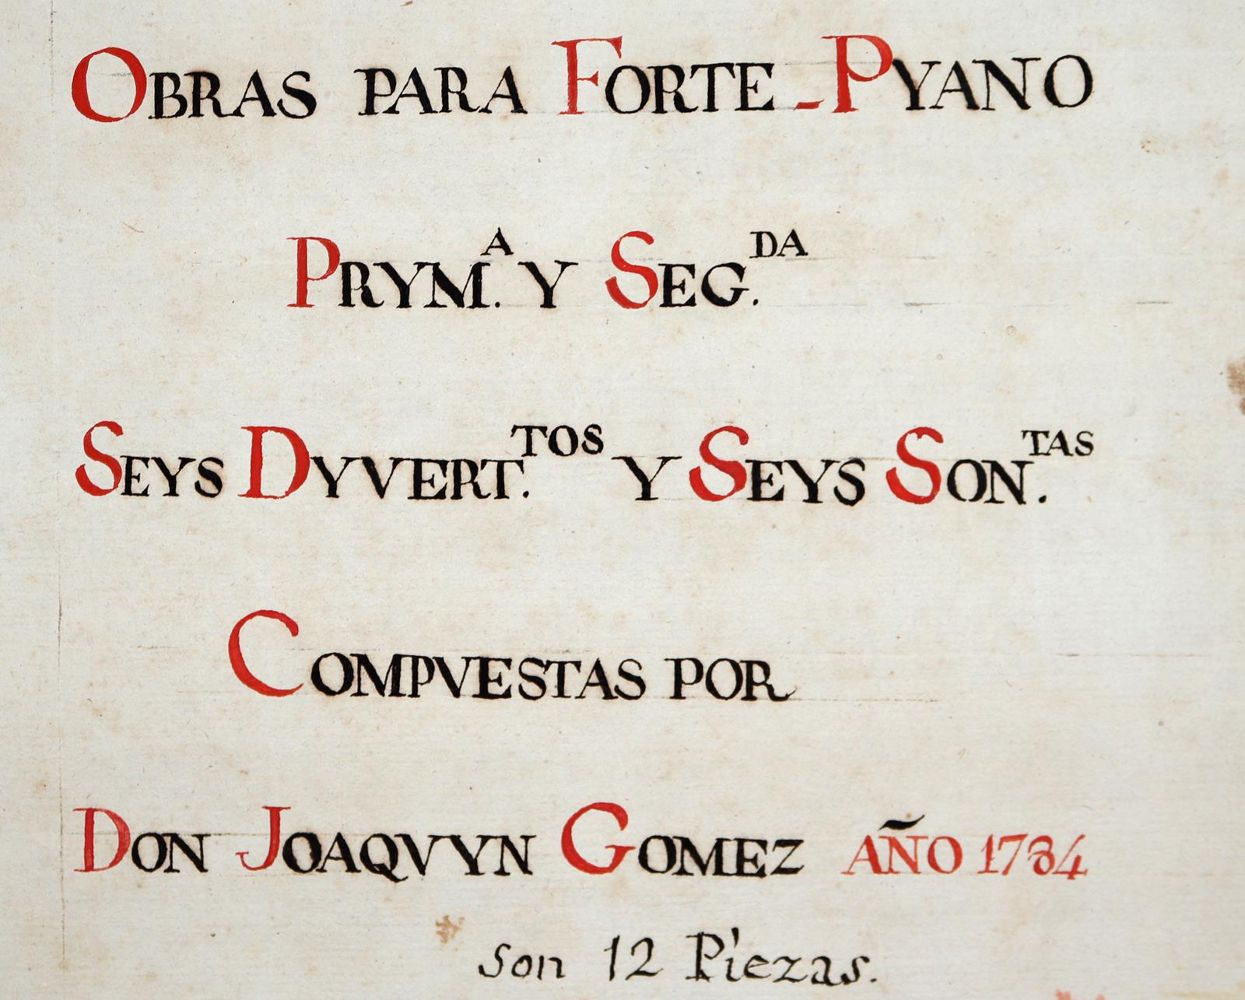 OBRAS PARA FORTE-PYANO
PRYM.A Y SEG.DA
SEYS DYVERT.TOS Y SEYS SON.TAS
COMPVESTAS POR
DON JOAQVYN GOMEZ AÑO 1784
son 12 Piezas.